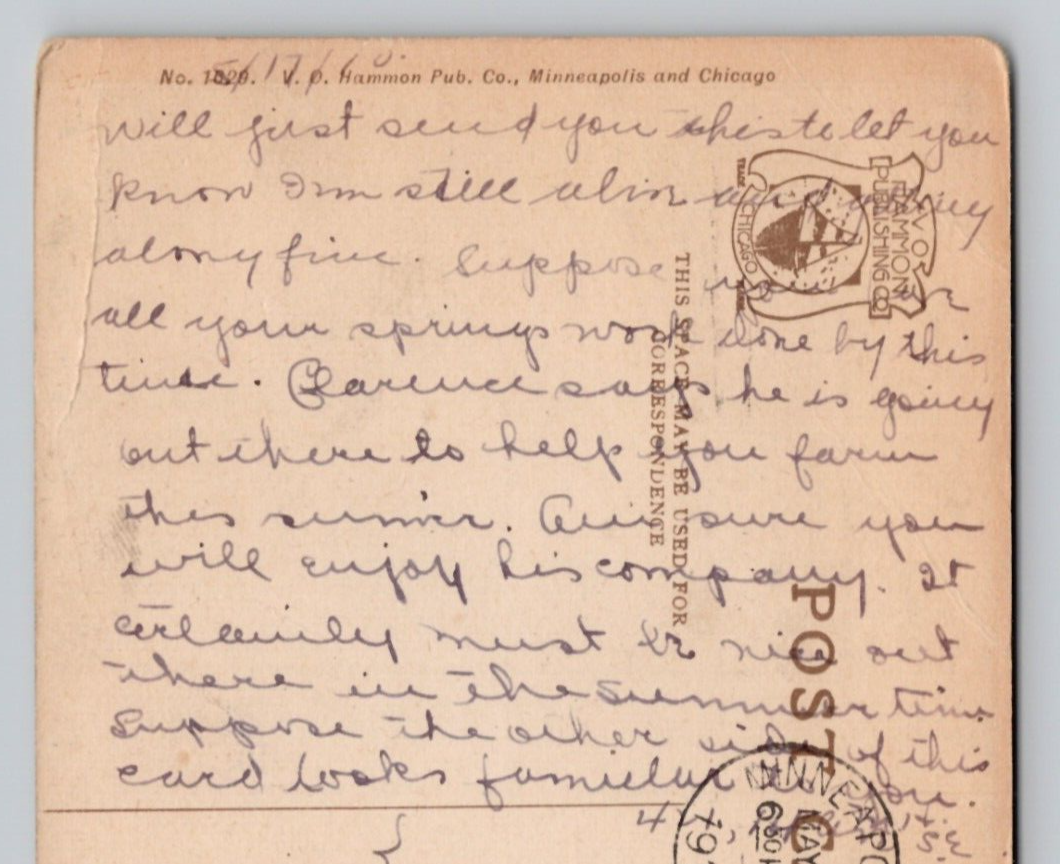 No. 1829. V. O. Hammon Pub. Co., Minneapolis and Chicago
5/17/10.
Will just send you this to let you
know I'm still alive and
along fine. Suppose you
all your springs work done by this
time. Clarence says he is going
out there to help you farm
this summer. Am sure you
will enjoy his company. It
certainly must be nice out
there in the summer time
Suppose the other side of this
card looks familiar to you.
THIS SPACE MAY BE USED FOR
CORRESPONDENCE
V. O.
HAMMON
PUBLISHING CO
TRADE
CHICAGO
POST C
MINNEAPO
MAY
630
191